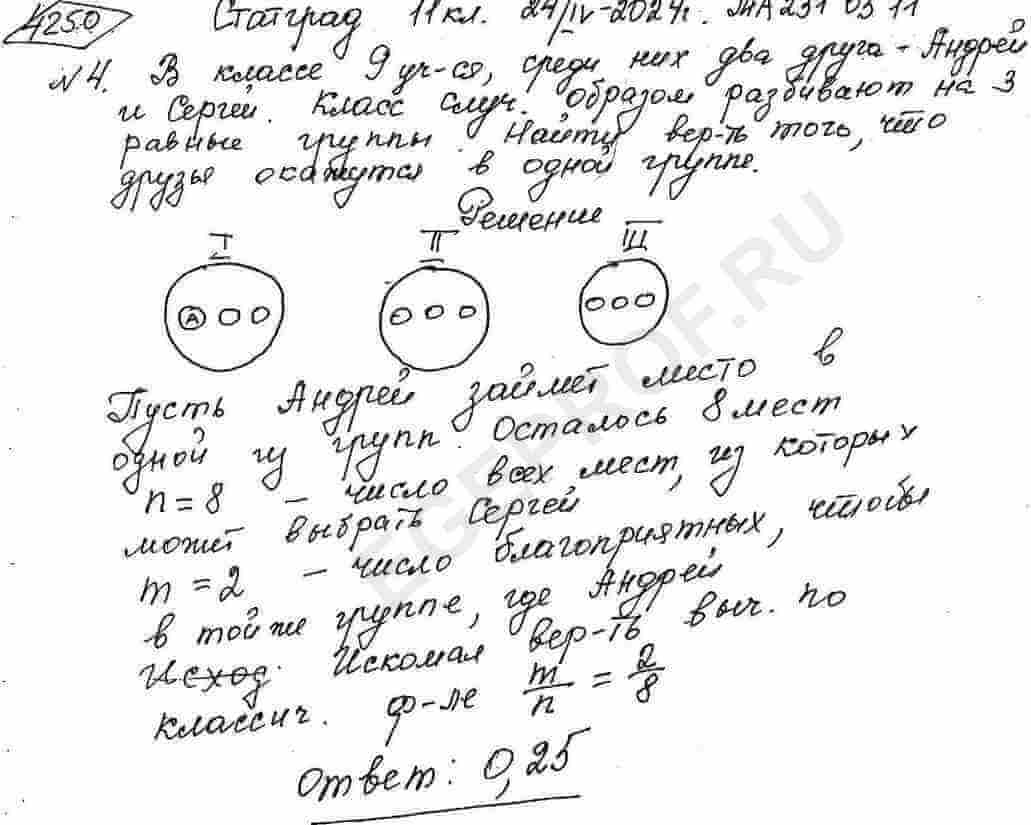 4250
Статград 11кл. 24/IV-2024г. МА231 03 11
№4. В классе 9 уч-ся, среди них два друга - Андрей
и Сергей. Класс случ. образом разбивают на 3
равные группы. Найти вер-ть того, что
друзья окажутся в одной группе.
Решение
I II III
А
Пусть Андрей займет место в
одной из групп. Осталось 8 мест
n = 8 – число всех мест, из которых
может выбрать Сергей
m = 2 – число благоприятных, чтобы
в той же группе, где Андрей
Исход. Искомая вер-ть выч. по
классич. ф-ле m/n = 2/8
Ответ: 0,25
EGEPROF.RU